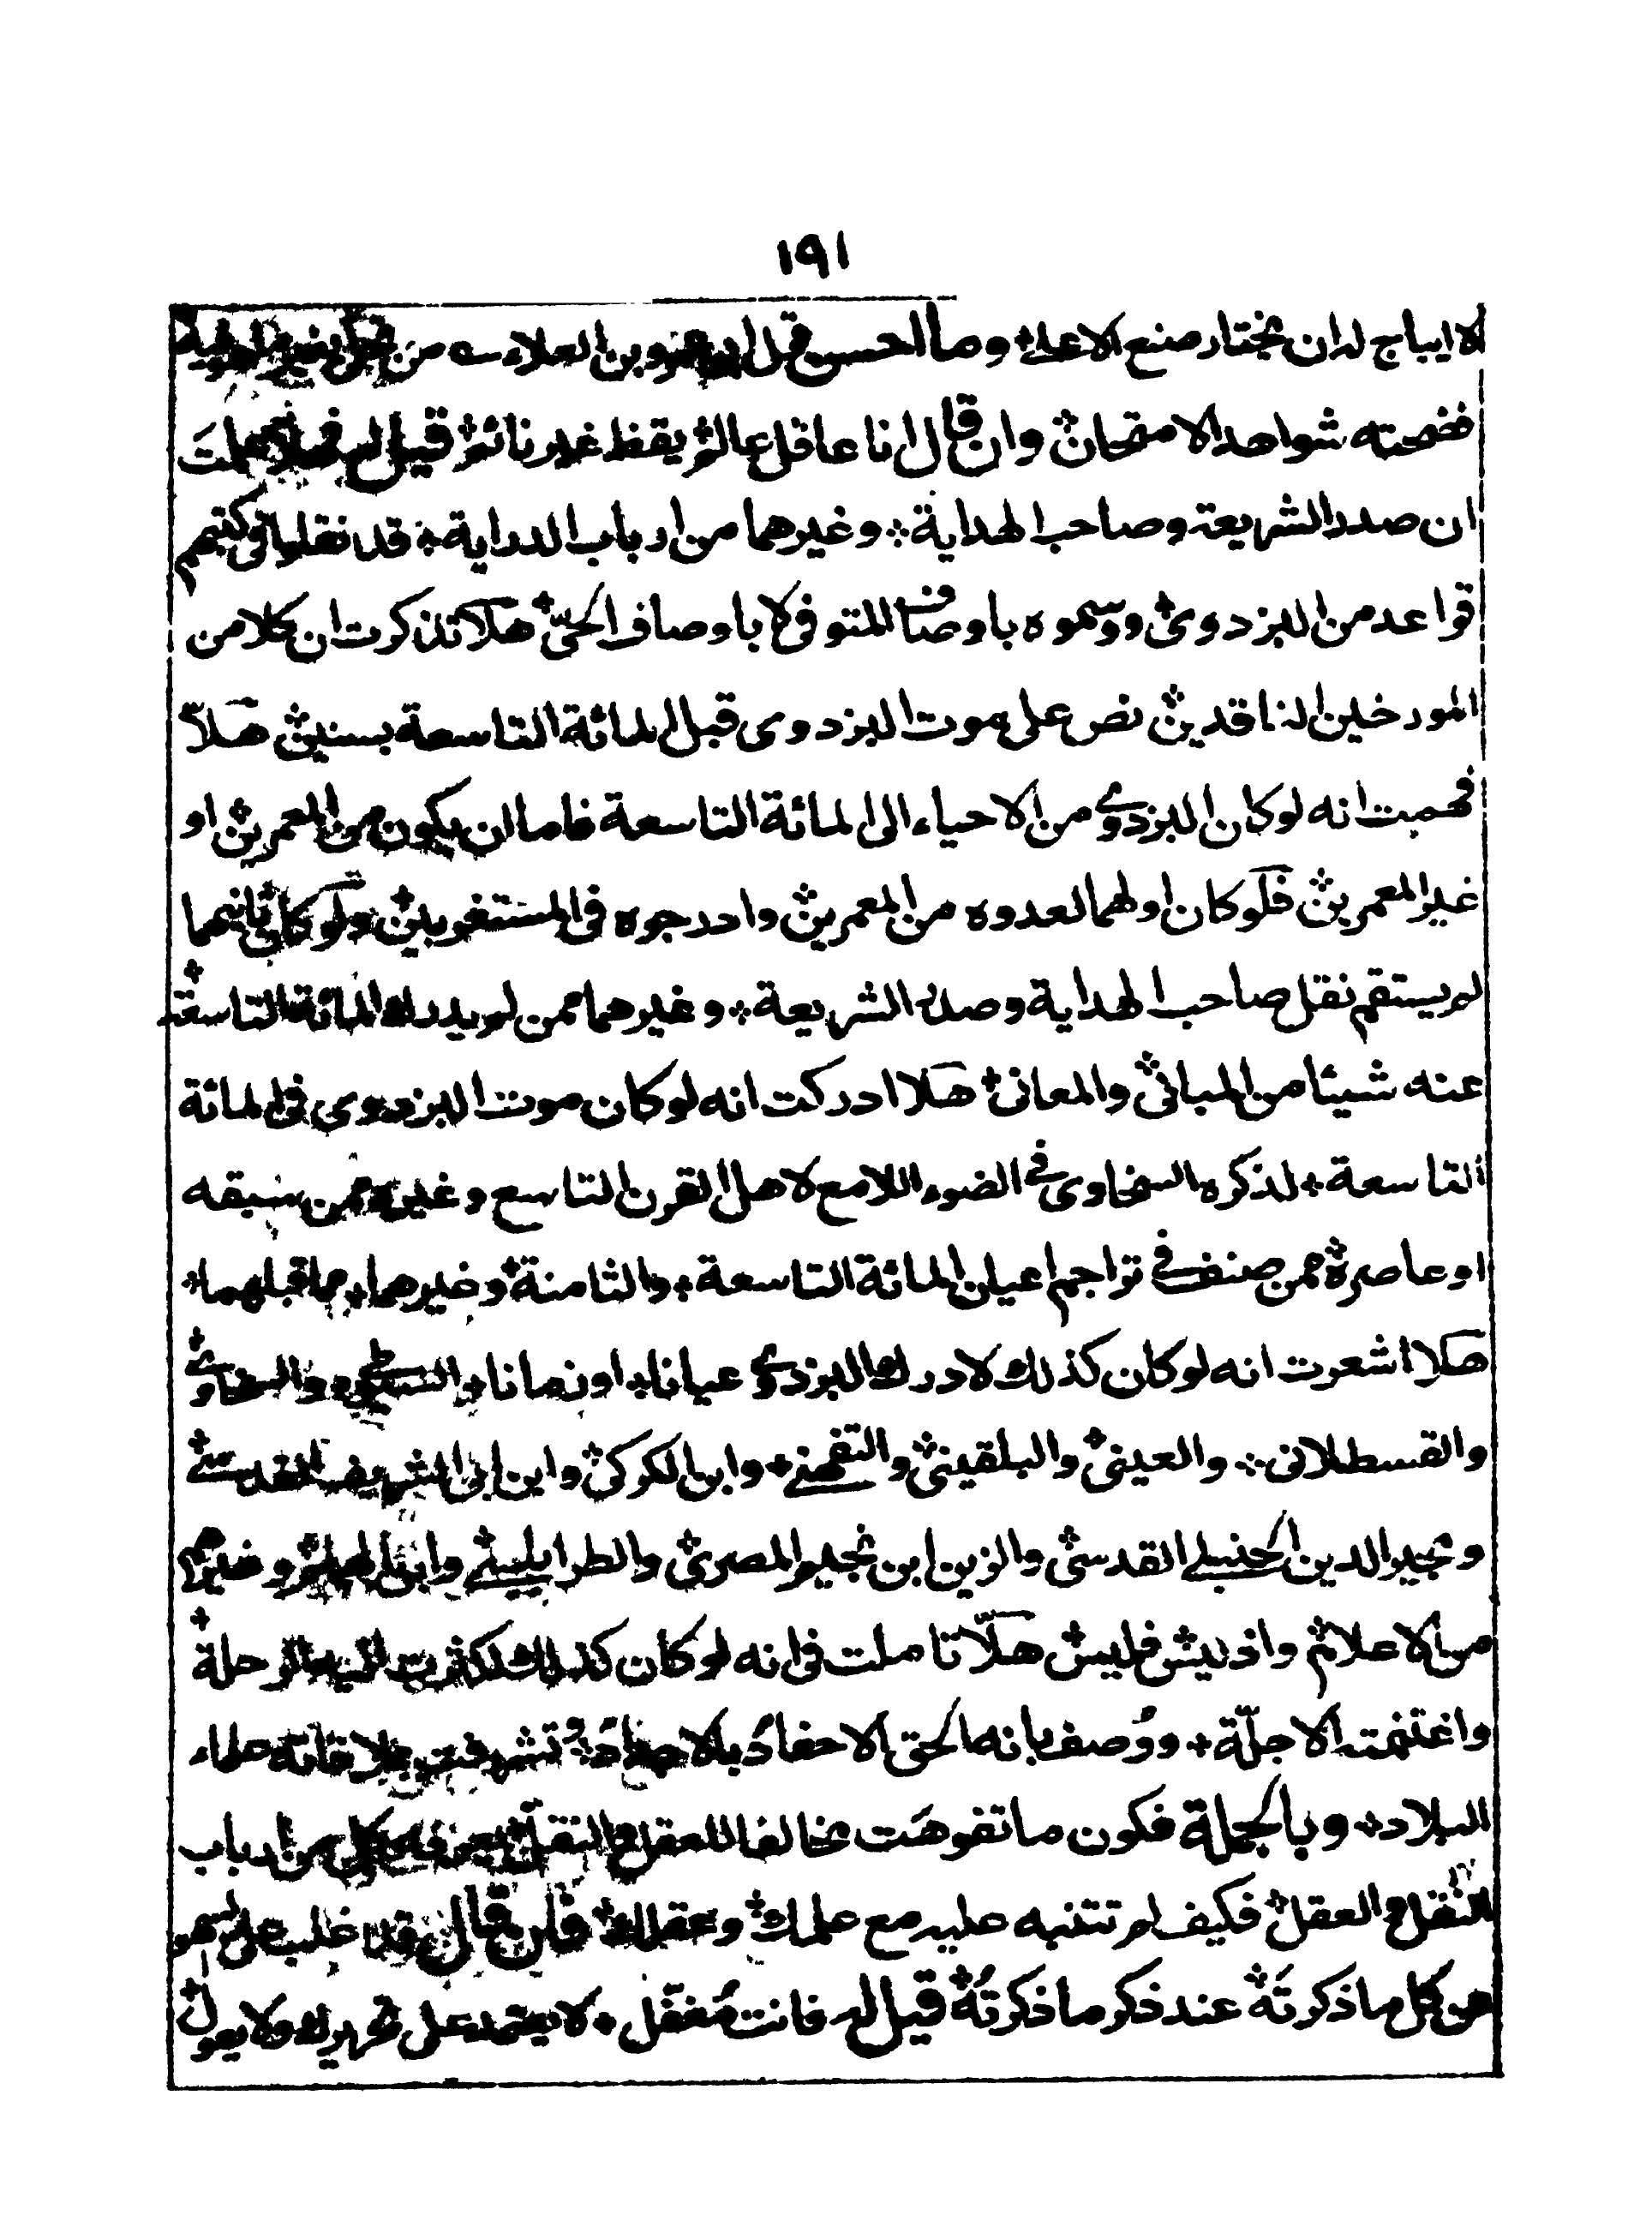 ١٩١
لا ايباح له ان يختار صنع الاعلى، وما احسن قول ابي عمرو بن العلاء من
فضحته شواهد الامتحان، وان قال انا عاقل عالم يقظ غير نائم قيل له فهلا علمت
ان صدر الشريعة وصاحب الهداية، وغيرهما من ارباب الدراية، قد نقلوا في كتبهم
قواعد من البزدوي، ووسموه باوصاف المتوفى لا باوصاف الحي، هلا تذكرت ان كلا من
المورخين الناقدين نص على موت البزدوي قبل المائة التاسعة بسنين، هلا
فهمت انه لو كان البزدوي من الاحياء الى المائة التاسعة فاما ان يكون من المعمرين او
غير المعمرين، فلو كان اولهما لعدوه من المعمرين وادرجوه في المستغربين، ولو كان ثانيهما
لم يستقم نقل صاحب الهداية وصدر الشريعة، وغيرهما ممن لم يدرك المائة التاسعة،
عنه شيئا من المباني، والمعاني، هلا ادركت انه لو كان موت البزدوي في المائة
التاسعة، لذكره السخاوي في الضوء اللامع لاهل القرن التاسع وغيره ممن سبقه
او عاصره، ممن صنف في تراجم اعيان المائة التاسعة، والثامنة، وغيرهما، مما قبلهما،
هلا اشعرت انه لو كان كذلك لادرك البزدوي عيانا، او زمانا، السيوطي، والسخاوي،
والقسطلاني، والعيني، والبلقيني، والتفهني، وابن الكركي، وابن ابي الشريف القدسي،
ومجير الدين الحنبلي القدسي، والزين ابن نجيم المصري، والطرابلسي، وابن الهمام، وغيرهم
من الاعلام، واذ ليس فليس، هلا تاملت في انه لو كان كذلك لكثرت اليه الرحلة،
واغتنمته الاجلّة، ووُصف بانه الحق الاحفاد بالاجداد، وتشرفت بملاقاته علماء
البلاد، وبالجملة فكون ما تفوهت مخالفا للعقل والنقل، يعرفه كل من ارباب
النقل والعقل، فكيف لم تتنبه عليه مع علمك، وعقلك، فان قال قد غلب علي سهو
عن كل ما ذكرتَه، عند ذكر ما ذكرتُه، قيل له فانت مُغفّل، لا يعتمد على تحريرك ولا يعول،